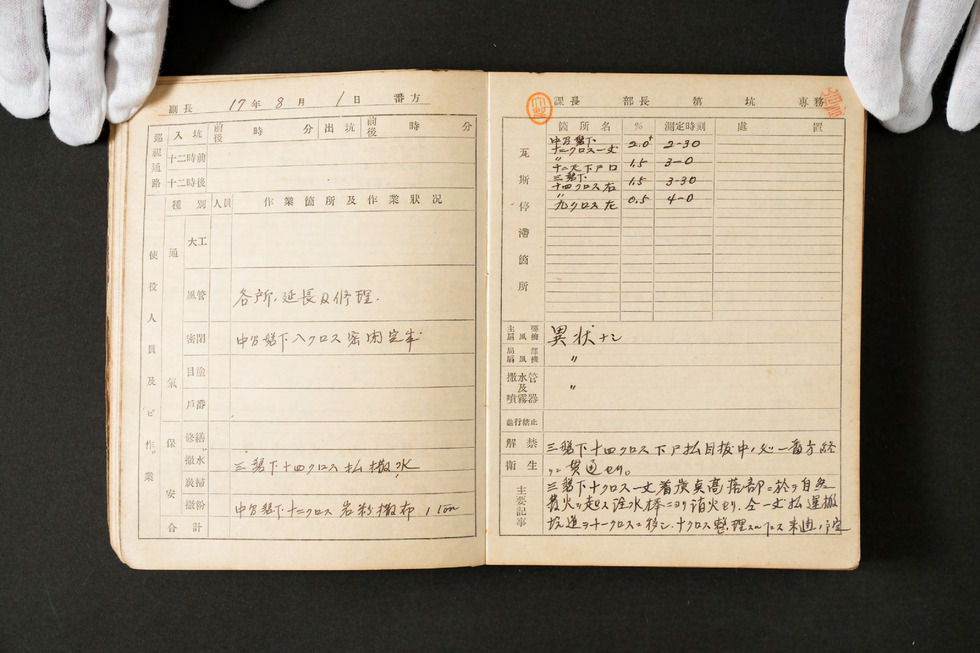 副長 17年 8月 1日 番方
巡視通路 入坑 前後 時 分 出坑 前後 時 分
十二時前
十二時後
使役人員及ビ作業
種別 人員 作業箇所及作業狀況
通氣
大工
風管 各所、延長及修理.
密閉 中万盤下八クロス密閉
目塗
戶番
保安
修繕
撒水 三盤下十四クロス払撒水
炭掃
撒粉 中万盤下十二クロス岩粉撒布
合計
課長 部長 第 坑 専務
瓦斯停滯箇所
箇所名 % 測定時刻 處置
中万盤下
十二クロス一丈 2.0+ 2-30
〃
下戸口 1.5 3-0
三盤下
十四クロス右 1.5 3-30
〃
九クロス左 0.5 4-0
主要扇風機 異状ナシ
局部扇風機 〃
撒水管及噴霧器 〃
進行禁止
解禁 三盤下十四クロス下戸払目抜中ノ処一番方経
衛生 ニ貫通セリ。
主要記事 三盤下十クロス一丈着炭真高落部ニ於テ自然
発火ヲ起セシ注水棒ニヨリ消火セリ. 全一丈払運搬
坑道ヲ十一クロスニ移シ、十クロス整理